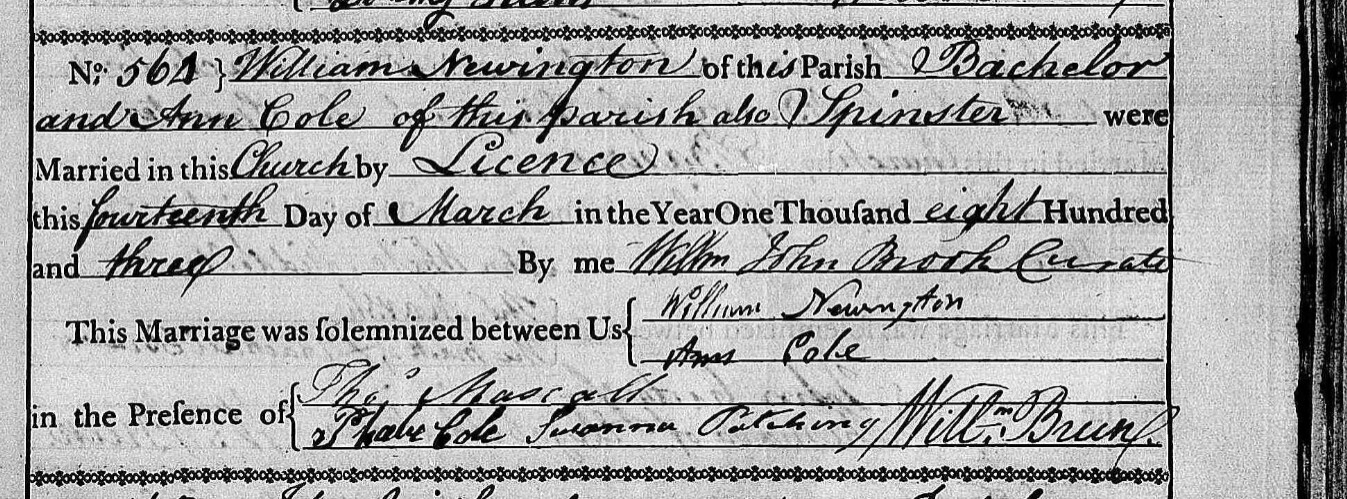 No: 564 } William Newington of this Parish Bachelor
and Ann Cole of this parish also Spinster were
Married in this Church by Licence
this fourteenth Day of March in the Year One Thouſand eight Hundred
and three By me Willm John Brook Curate
William Newington
This Marriage was ſolemnized between Us {
Ann Cole
Thos Mascall
in the Preſence of {
Phabe Cole Susanna Patching Willm Brun